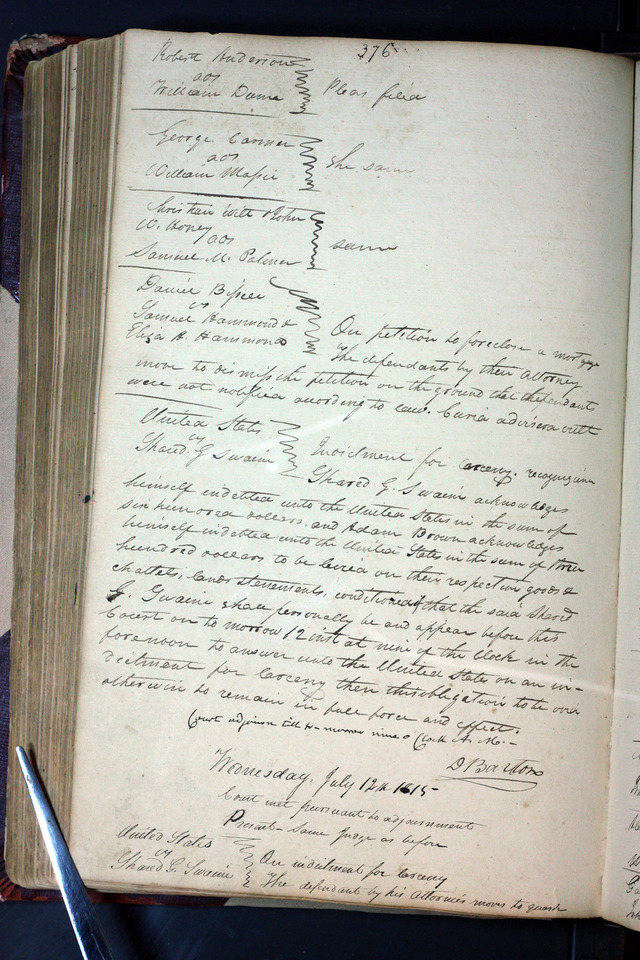 376
Robert Anderson
ads
William Dunn
Pleas filed
George Carmer
ads
William Massie
the same
Christian Wilt & John
W. Honey
ads
Samuel M. Palmer
same
Daniel Bissell
vs
Samuel Hammond &
Eliza A. Hammond
On petition to foreclose a mortgage
The defendants by their Attorney
move to dismiss the petition on the ground that defendants
were not notified according to law. Curia advisera vult
United States
vs
Shared G Swaine
Indictment for larceny. recognizance
Shared G. Swaine acknowledges
himself indebted unto the United States in the sum of
six hundred dollars, and Adam Brown acknowledges
himself indebted unto the United States in the sum of three
hundred dollars to be levied on their respective goods &
chattels, lands & tenements, conditioned that the said Shared
G. Swaine shall personally be and appear before this
Court on to morrow 12 inst at nine of the clock in the
forenoon to answer unto the United States on an in-
dictment for larceny then this obligation to be void
otherwise to remain in full force and effect.
Court adjourn till to-morrow nine o Clock A. M. -
D Barton
Wednesday, July 12th 1815
Court met pursuant to adjournment
Present Same Judge as before
United States
vs
Shared G. Swaine
On indictment for larceny
The defendant by his attornies moves to quash